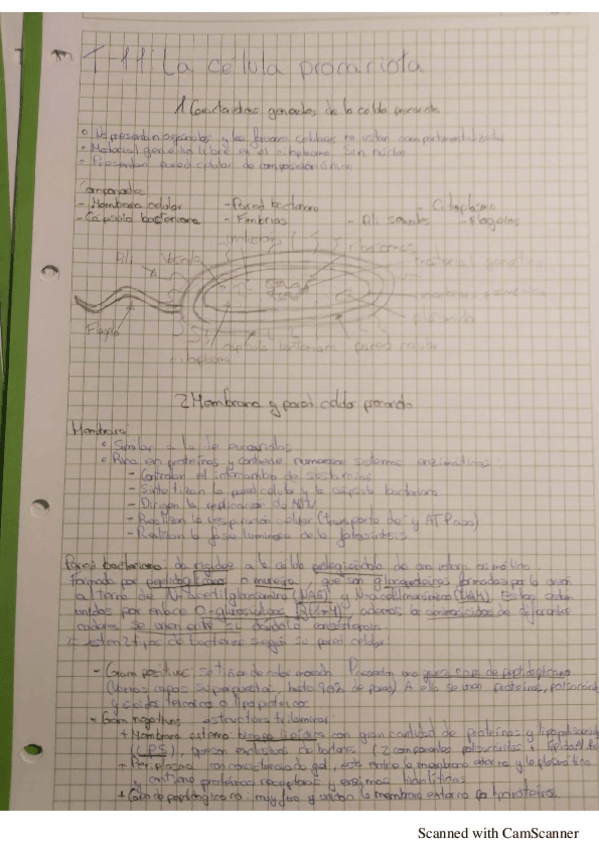 T-11: La célula procariota
1 Características generales de la célula procariota
• No presentan orgánulos y las funciones celulares no están compartimentalizadas
• Material genético libre en el citoplasma. Sin núcleo
- Presentan pared celular de composición
Componentes
- Membrana celular - Pared bacteriana - Citoplasma
- Cápsula bacteriana - Fimbrias - Pili sexuales - Flagelos
Pili Vacuola ribosomas
material genético
plásmido
Flagelo cápsula bacteriana pared celular
citoplasma
2 Membrana y pared celular procariota
Membrana
• Similar a la de eucariotas
• Rica en proteínas y contiene numerosos sistemas enzimáticos:
- Controlan el intercambio de sustancias
- Sintetizan la pared celular y la cápsula bacteriana
- Dirigen la replicación de ADN
- Realizan la respiración celular (transporte de e- y ATPasa)
- Realizan la fase luminosa de la fotosíntesis
Pared bacteriana: da rigidez a la célula
formada por peptidoglicano o mureína, que son formados por la unión
alterna de N-acetilglucosamina (NAG) y (NAM). Están
unidos por enlace O-glucosídico β(1→4), además los aminoácidos de diferentes
cadenas se unen entre sí
Existen 2 tipos de bacterias según su pared celular:
- Gram positivas: se tiñen de color morado. Presentan una gruesa capa de peptidoglicano
(varias capas superpuestas, hasta 90% de pared) A ella se unen proteínas, polisacáridos
y ácidos
- Gram negativas: estructura trilaminar
+ Membrana externa: bicapa lipídica con gran cantidad de proteínas y lipopolisacáridos
(LPS), exclusivo de bacterias. (2 componentes polisacáridos y lípido A)
+ Periplasma: con consistencia de gel, está entre la membrana externa y la plasmática
y contiene proteínas receptoras y enzimas hidrolíticas
+ Capa de peptidoglicano: muy fina y unida a la membrana externa por lipoproteínas.
Scanned with CamScanner